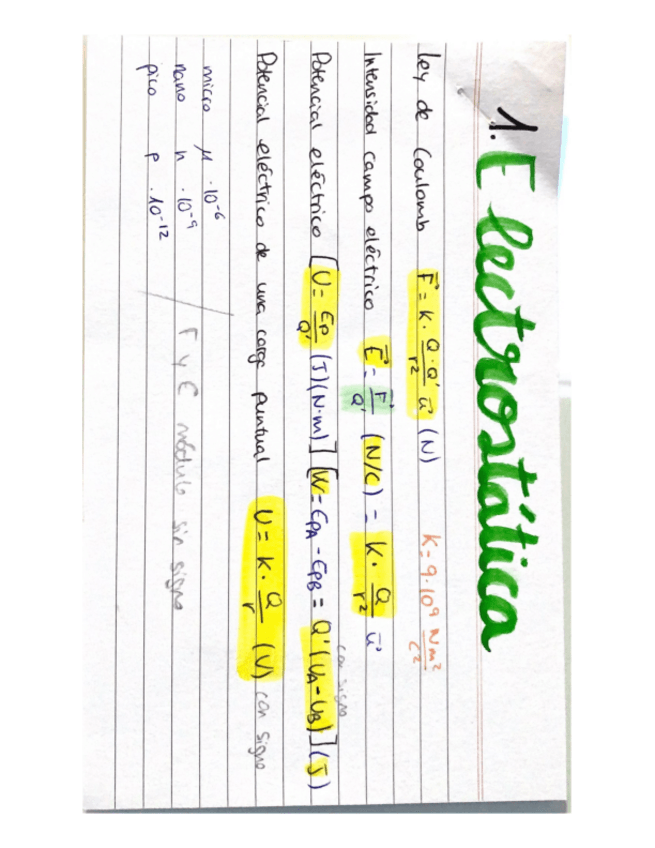 1. Electrostática
Ley de Coulomb F⃗ = K · Q·Q'/r² u⃗ (N) K = 9·10⁹ Nm²/C²
Intensidad campo eléctrico E⃗ = F⃗/Q' (N/C) = K · Q/r² u⃗
Potencial eléctrico [U = Ep/Q' (J)(N·m)] [W = EpA - EpB = Q'(UA - UB)] (J)
con signo
Potencial eléctrico de una carga puntual U = K · Q/r (V) con signo
micro μ ·10⁻⁶
nano n ·10⁻⁹ / F y E módulo sin signo
pico p ·10⁻¹²